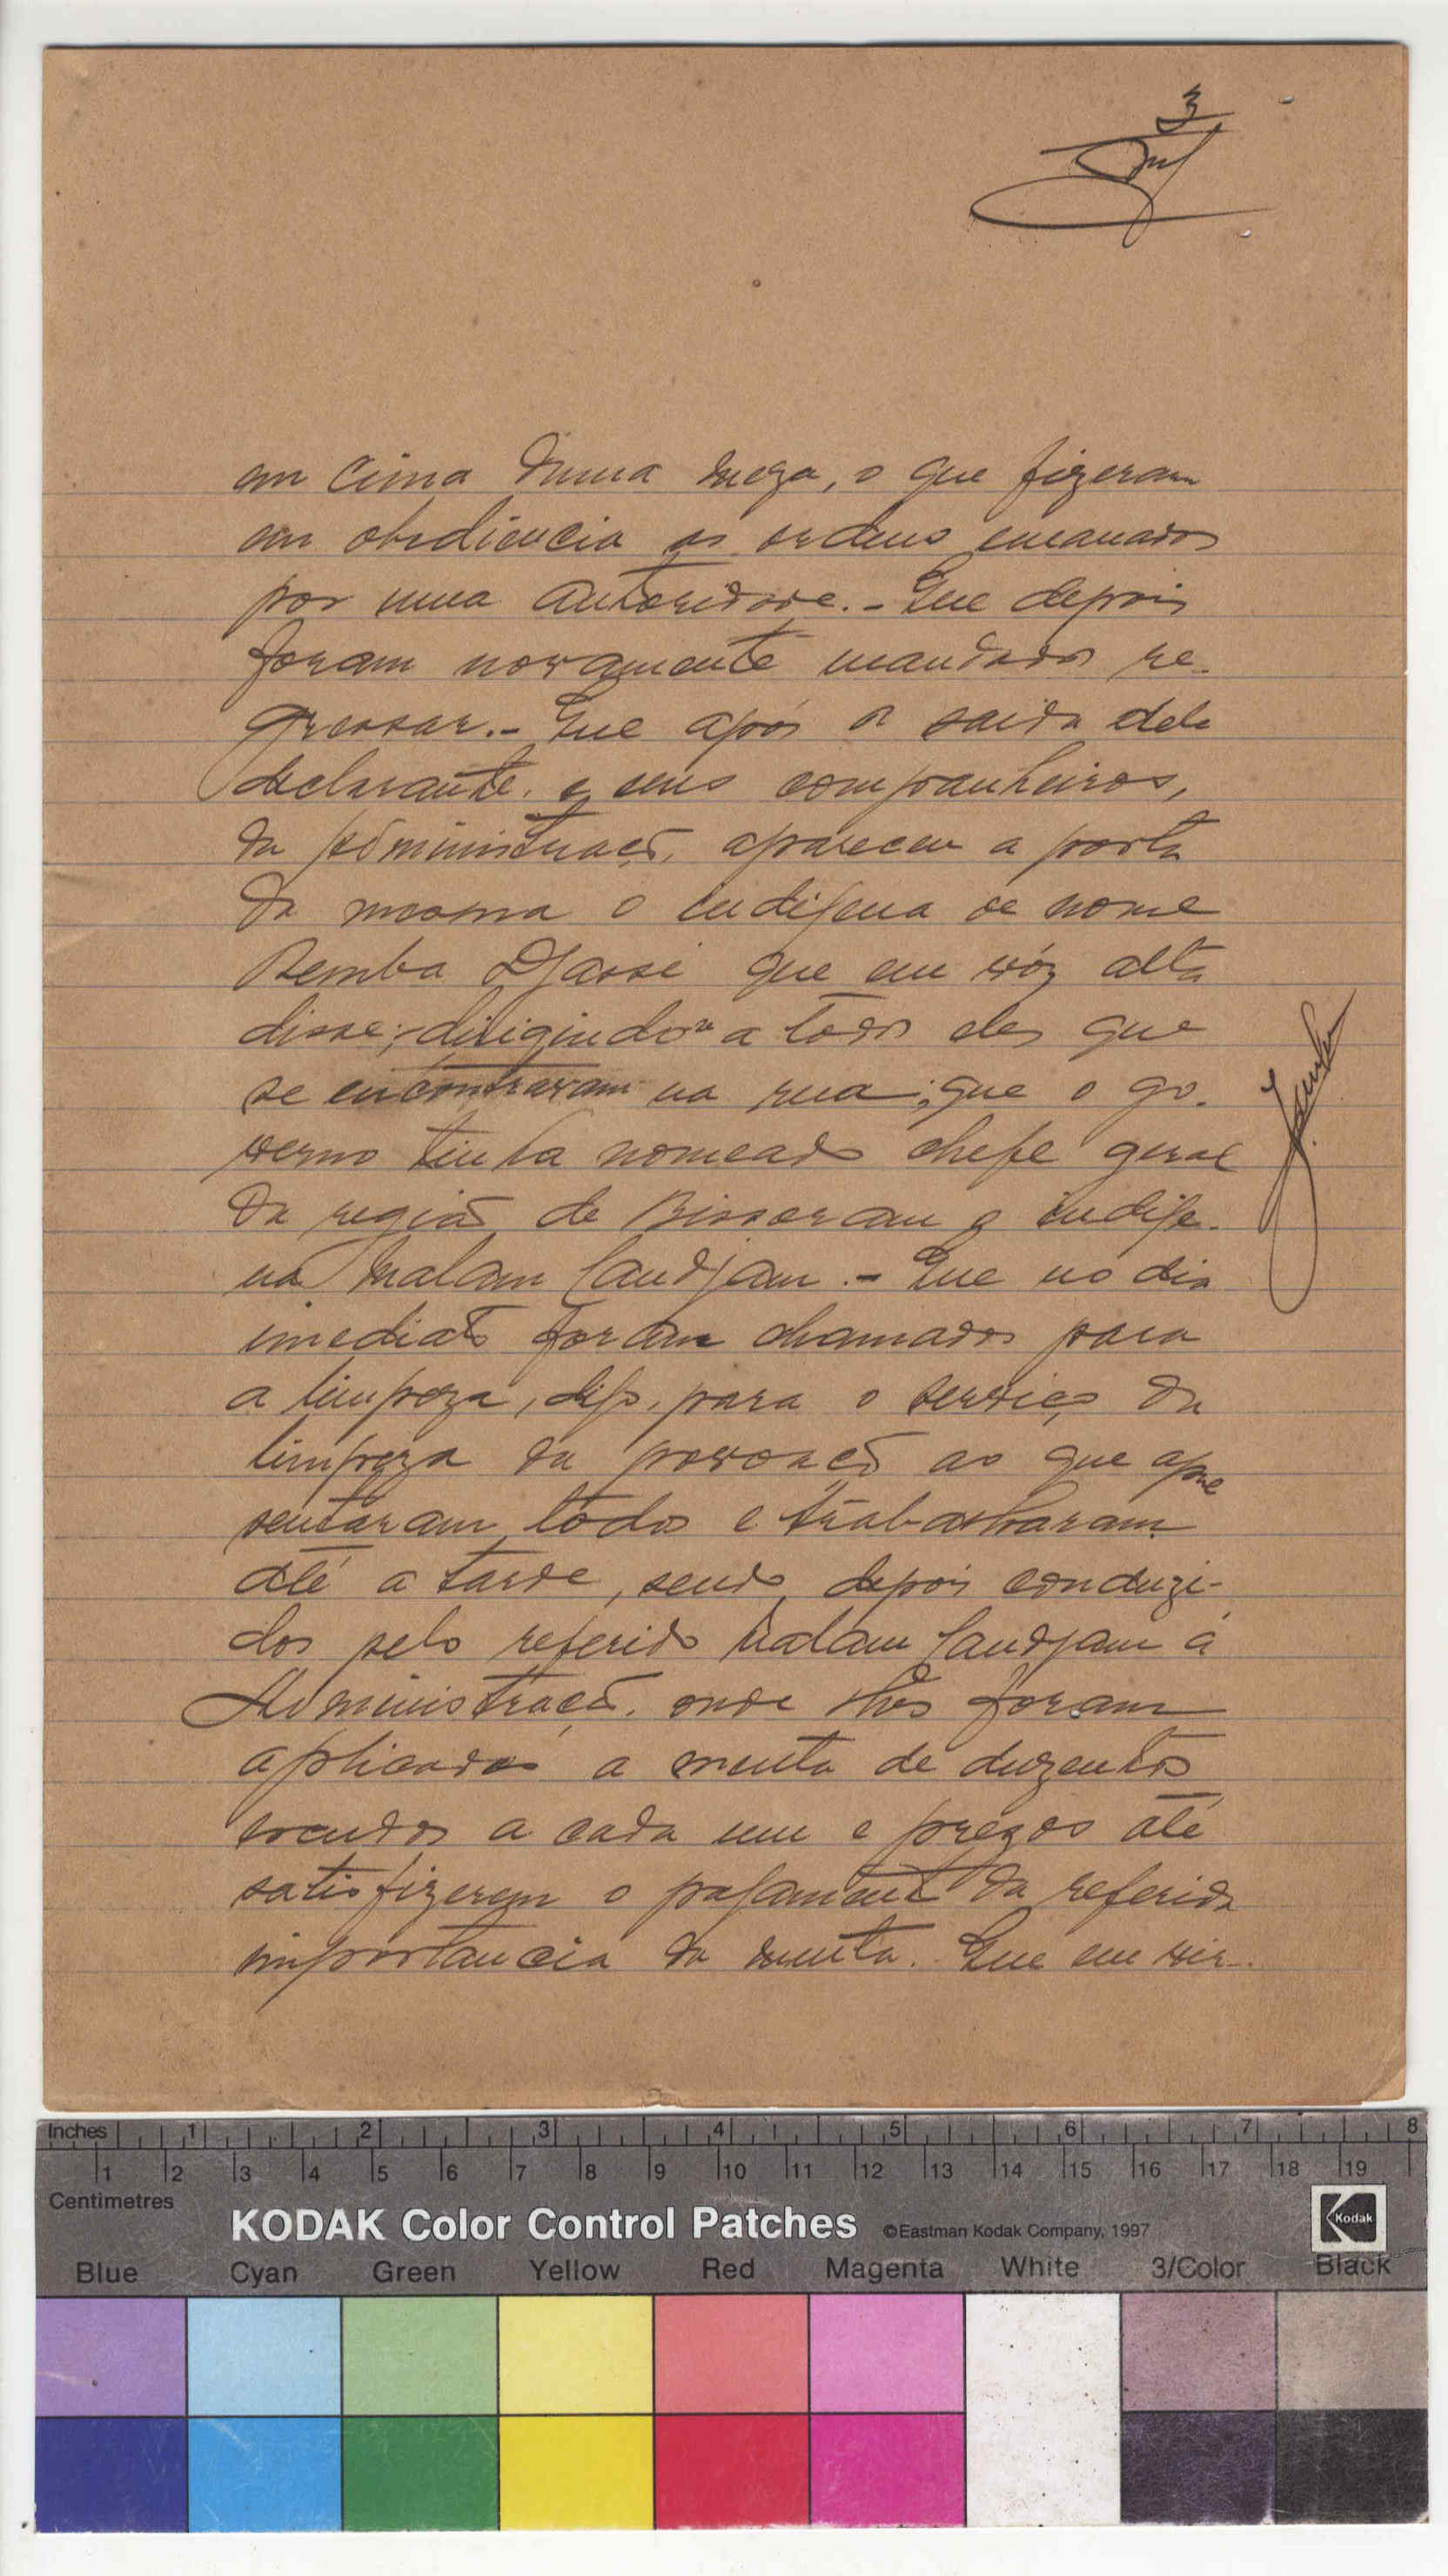 3
em cima duma meza, o que fizeram
em obediencia as ordens emanados
por uma autoridade.- Que depois
foram novamente mandados re-
gressar.- Que após a saida dele
declarante. e seus companheiros,
da Administração, apareceu a porta
da mesma o indigena de nome
Bemba Djassi que em vóz alta
disse, dirigindo-se a todos eles que
se encontravam na rua, que o go-
verno tinha nomeado chefe geral
da região de Bissoram o indige-
na Malam Sandjam.- Que no dia
imediato foram chamados para
a limpeza, digo, para o serviço da
limpeza da povoação ao que apre
sentaram todos e trabalharam
até a tarde, sendo depois conduzi-
dos pelo referido Malam Sandjam á
Administração. onde lhes foram
aplicados a multa de duzentos
escudos a cada um e prezos até
satisfizerem o pagamento da referida
importancia da multa. Que em vir-
Inches 1 2 3 4 5 6 7 8
1 2 3 4 5 6 7 8 9 10 11 12 13 14 15 16 17 18 19
Centimetres
KODAK Color Control Patches ©Eastman Kodak Company, 1997 Kodak
Blue Cyan Green Yellow Red Magenta White 3/Color Black